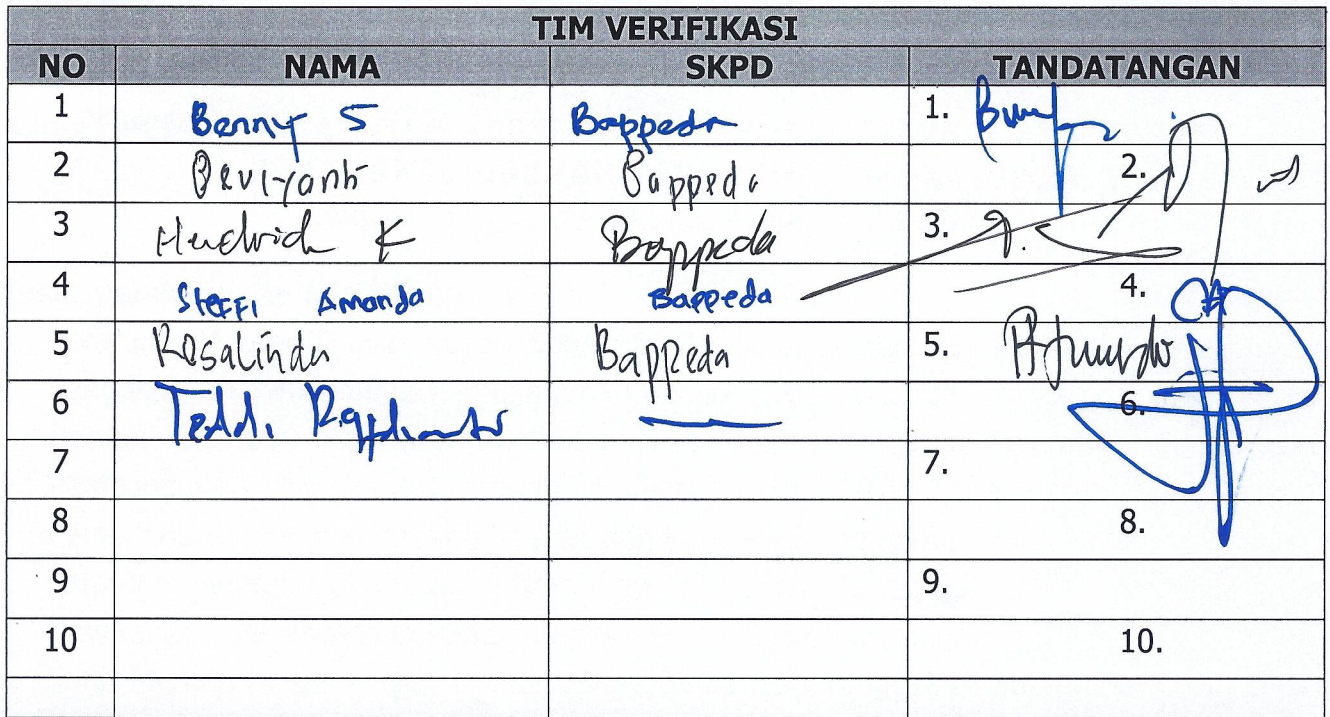 TIM VERIFIKASI
NO NAMA SKPD TANDATANGAN
1 Benny S Bappeda 1.
2 Deviyanti Bappeda 2.
3 Hendrich K Bappeda 3.
4 Steffi Amanda Bappeda 4.
5 Rosalinda Bappeda 5.
6 Teddi 6.
7 7.
8 8.
9 9.
10 10.